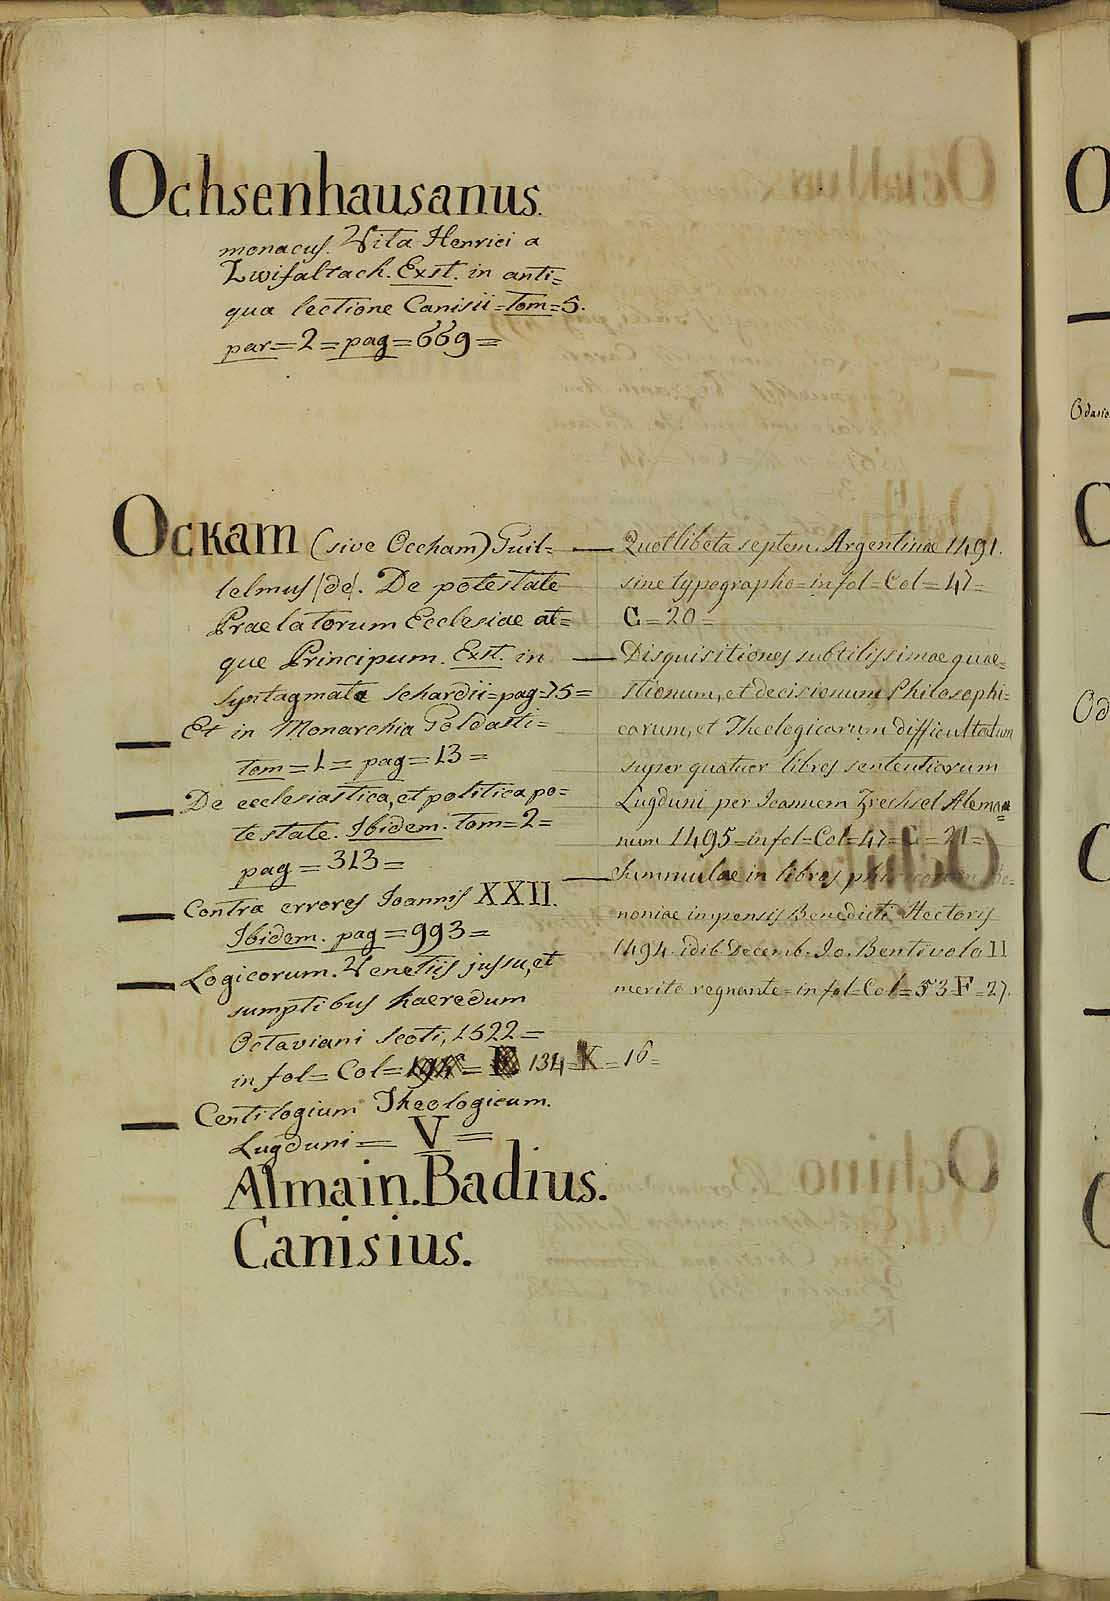 Ochsenhausanus.
monacus. Vita Henrici a
Zwifaltach. Exst. in anti=
qua lectione Canisii = tom = 5.
par = 2 = pag = 669 =
Ockam (sive Occham) Guil=
lelmus (de). De potestate
Praelatorum Ecclesiae at=
que Principum. Exst. in
Syntagmate Schardii = pag = 75 =
— Et in Monarchia Goldasti =
tom = 1 = pag = 13 =
— De ecclesiastica, et politica po=
testate. Ibidem. tom = 2 =
pag = 313 =
— Contra errores Joannis XXII.
Ibidem. pag = 993 =
— Logicorum. Venetiis jussu, et
sumptibus haeredum
Octaviani Scoti, 1522 =
in fol = Col = 134 = K = 16 =
— Centilogium Theologicum.
Lugduni = V =
Almain. Badius.
Canisius.
— Quotlibeta septem. Argentinae 1491.
sine typographo = in fol = Col = 47 =
G = 20 =
— Disquisitiones subtilissimae quae=
stionum, et decisionum Philosophi=
carum, et Theologicarum difficultatum
super quatuor libros sententiarum
Lugduni per Joannem Trechsel Aleman=
num 1495 = in fol = Col = 47 = G = 21 =
— Summulae in libros phisicorum Bo=
noniae inpensis Benedicti Hectoris
1494. Idib. Decemb. Jo. Bentivolo II
merito regnante = in fol = Col = 53 F = 27.